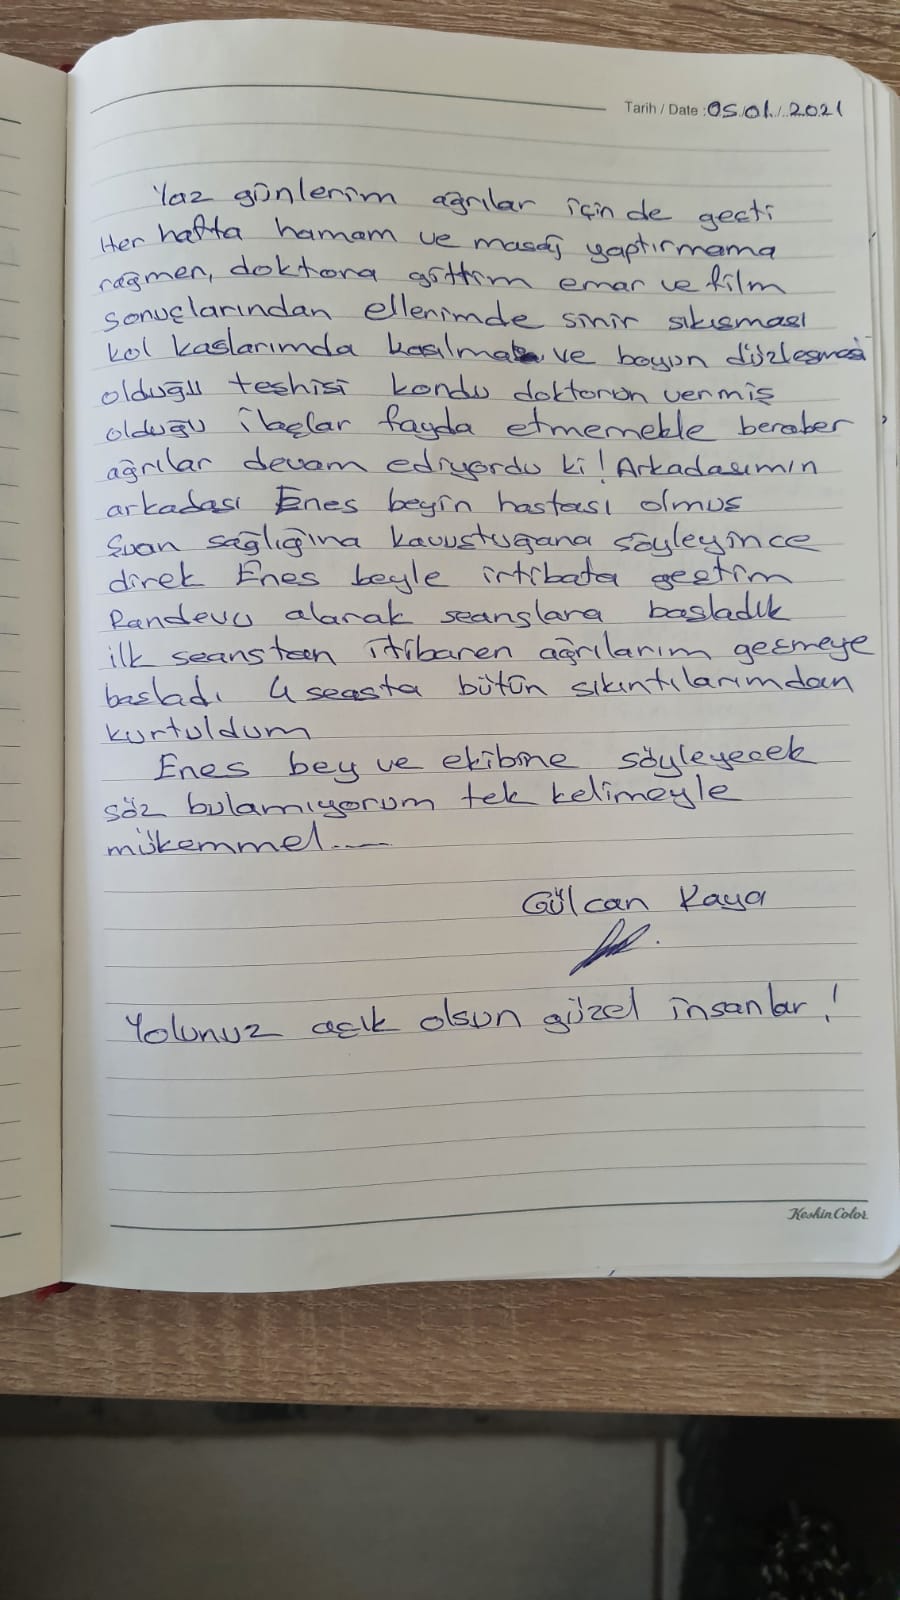 Tarih / Date : 05/01/2021
Yaz günlerim ağrılar içinde geçti
Her hafta hamam ve masaj yaptırmama
rağmen, doktora gittim emar ve film
sonuçlarından ellerimde sinir sıkısması
kol kaslarımda kasılmak ve boyun düzleşmesi
olduğu teshisi kondu doktorun vermiş
olduğu ilaçlar fayda etmemekle beraber
ağrılar devam ediyordu ki! Arkadasımın
arkadası Enes beyin hastası olmuş
Şuan sağlığına kavustuguna söyleyince
direk Enes beyle irtibata geçtim
Randevu alarak seanslara başladık
ilk seanstan itibaren ağrılarım geçmeye
basladı 4 seasta bütün sıkıntılarımdan
kurtuldum
Enes bey ve ekibine söyleyecek
söz bulamıyorum tek kelimeyle
mükemmel.....
Gülcan Kaya
Yolunuz açık olsun güzel insanlar!
KeskinColor